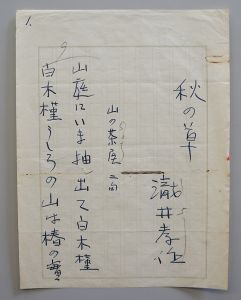 1.
秋の草
瀧井孝作
山の茶屋 二句
山庭にいま抽ん出て白木槿
白木槿うしろの山は椿の實